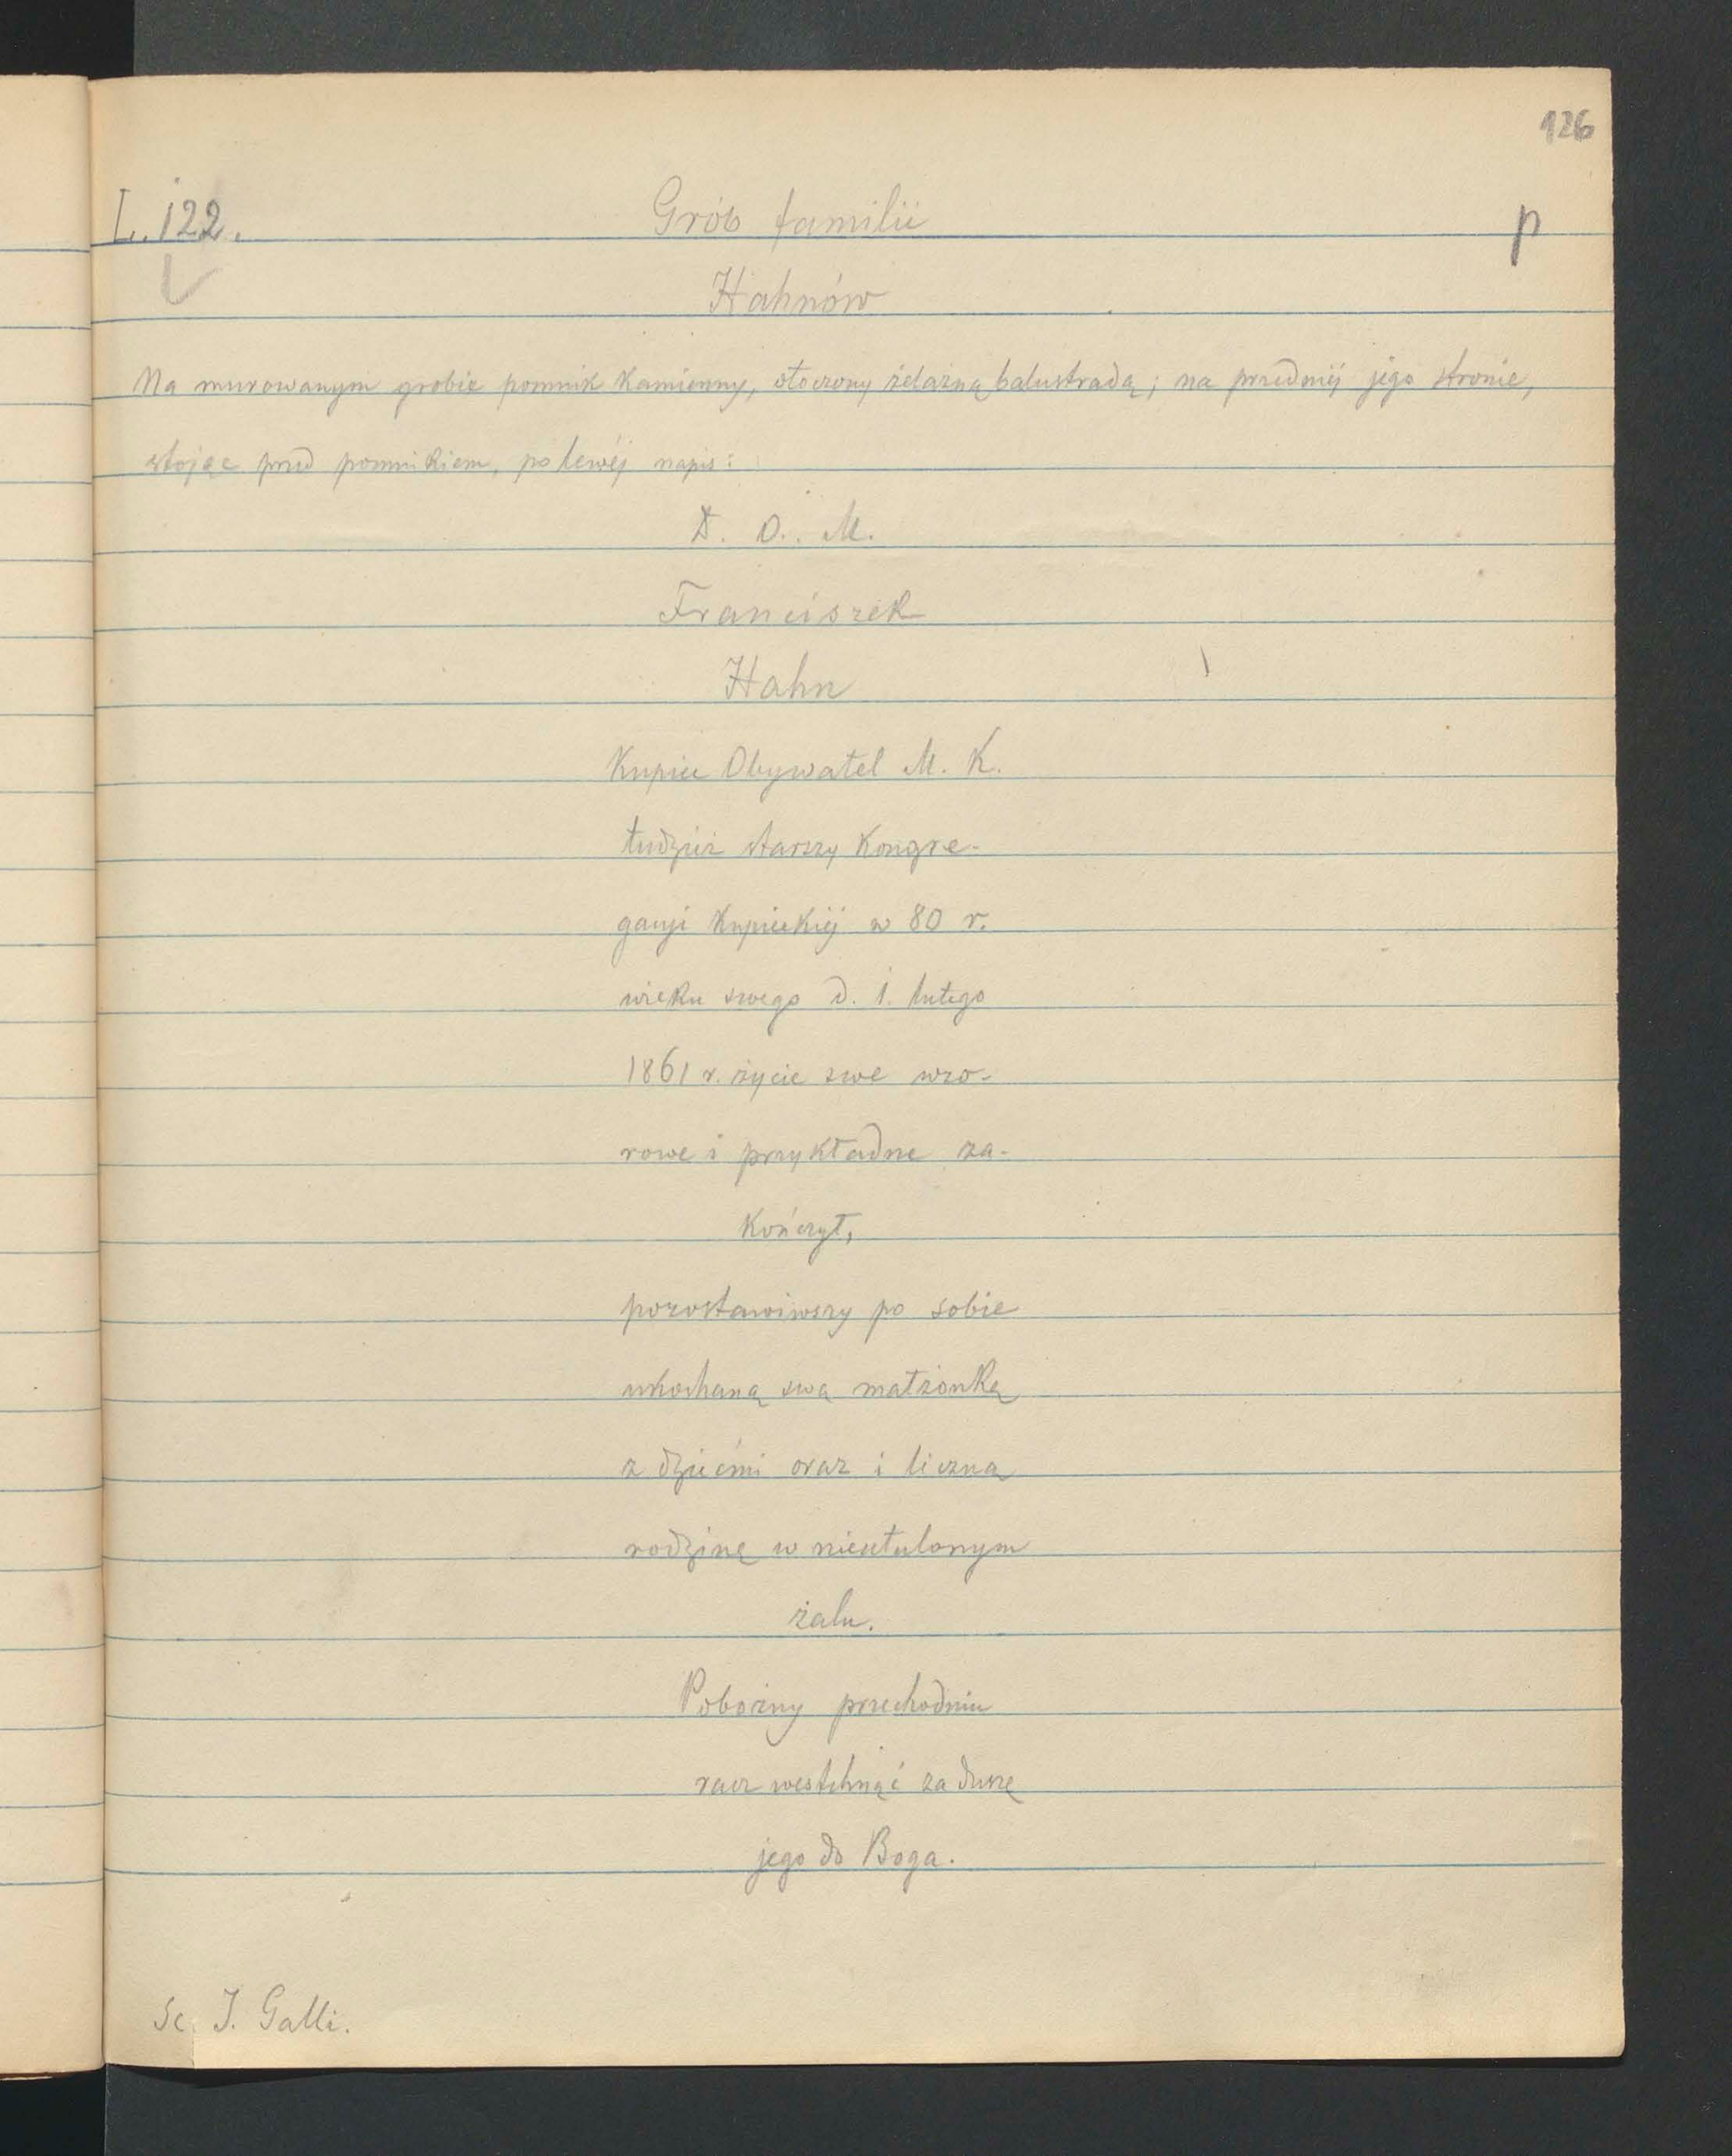 126
L. 122.
Grób familii
p
Hahnów
Na murowanym grobie pomnik kamienny, otoczony żelazną balustradą; na przedniéj jego stronie,
stojąc przed pomnikiem, po lewéj napis:
D. O. M.
Franciszek
Hahn
Kupiec Obywatel M. K.
tudzież starszy Kongre-
gacyi Kupieckiéj w 80 r.
wieku swego d. 1. lutego
1861 r. życie swe wzo-
rowe i przykładne za-
kończył,
pozostawiwszy po sobie
ukochaną swą małżonkę
z dziećmi oraz i liczną
rodzinę w nieutulonym
żalu.
Pobożny przechodniu
racz westchnąć za duszę
jego do Boga.
Sc. J. Galli.